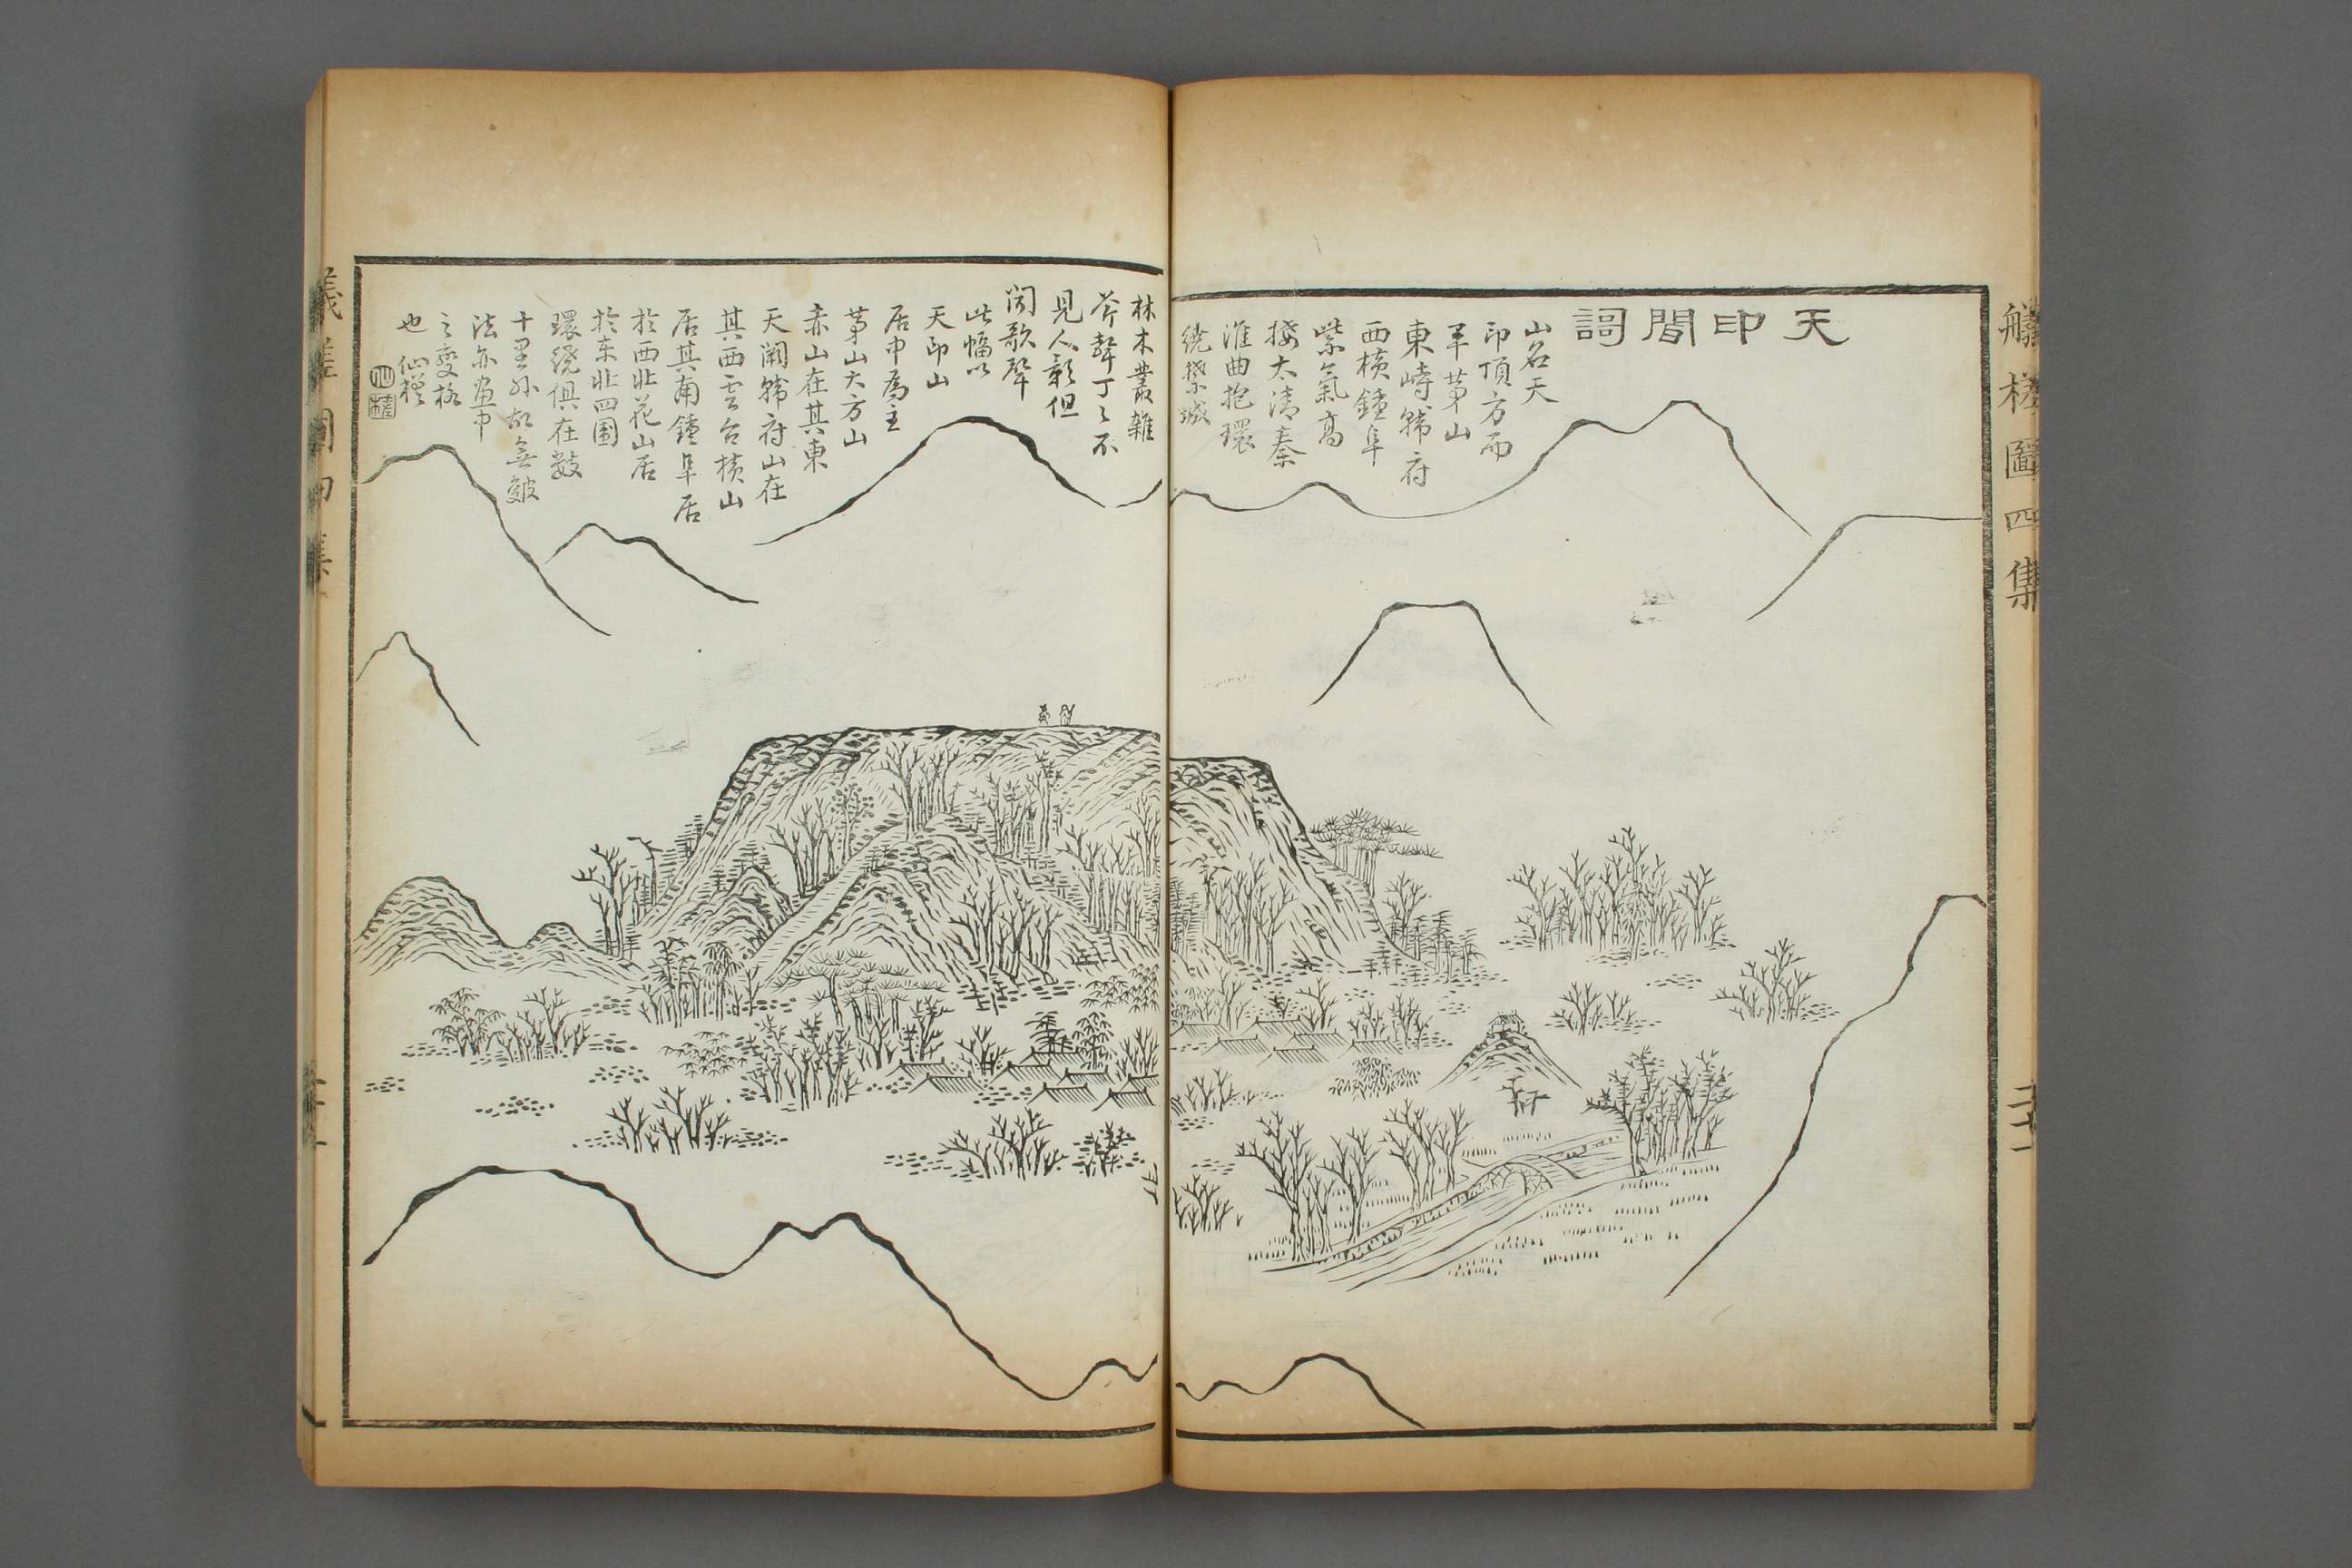 艤槎圖四集
二十一
天印間謌
山名天
印頂方而
平茅山
東峙韩府
西橫鍾阜
紫氣高
接太清秦
淮曲抱環
繞禁城
林木叢雜
斧聲丁丁不
見人影但
闻歌聲
此幅以
天印山
居中為主
茅山大方山
赤山在其東
天闕韩府山在
其西雲台橫山
居其南鍾阜居
於西北花山居
於东北四圍
環繞俱在數
十里外故無皴
法亦画中
之变格
也 仙槎
仙槎
艤槎圖四集